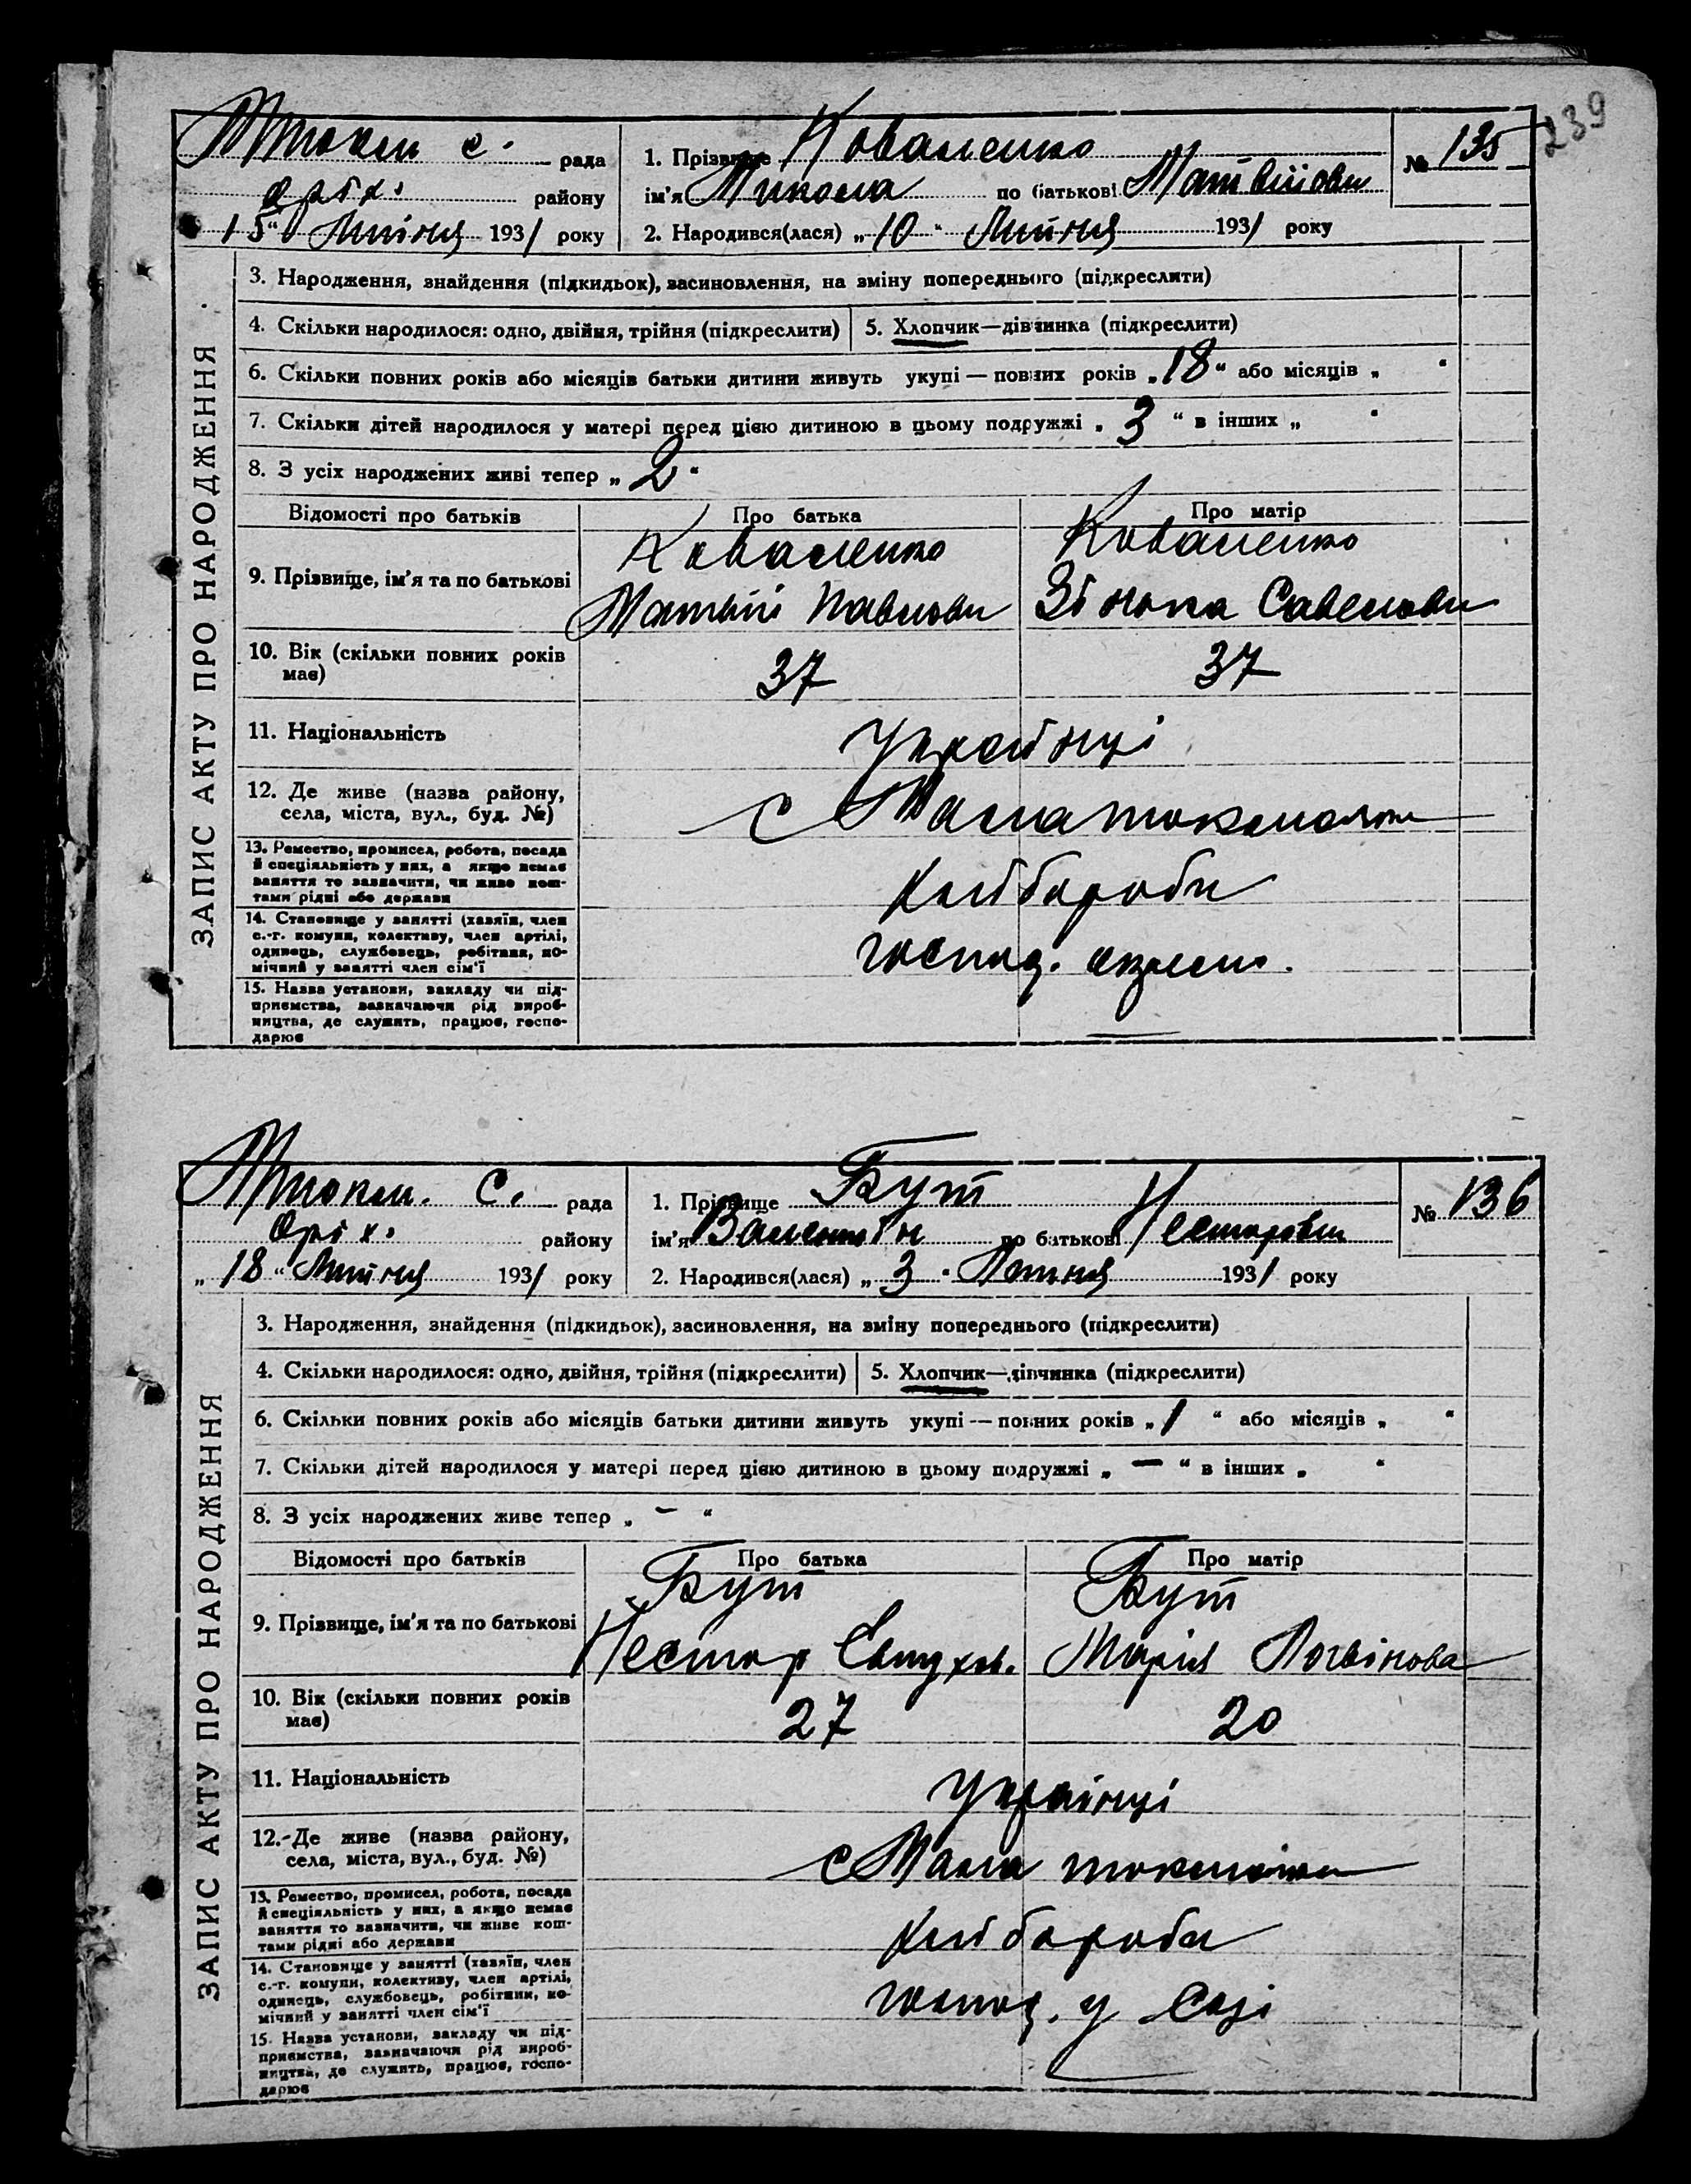 239
М токм с. рада
оріх. району
15 " Липня 1931 року
1. Прізвище Коваленко
ім'я Микола по батькові Матвійови
2. Народився(лася) „ 10 " Липня 1931 року
№ 135
ЗАПИС АКТУ ПРО НАРОДЖЕННЯ
3. Народження, знайдення (підкидьок), засиновлення, на зміну попереднього (підкреслити)
4. Скільки народилося: одно, двійня, трійня (підкреслити)
5. Хлопчик—дівчинка (підкреслити)
6. Скільки повних років або місяців батьки дитини живуть укупі — повних років „ 18 " або місяців „ "
7. Скільки дітей народилося у матері перед цією дитиною в цьому подружжі „ 3 " в інших „ "
8. З усіх народжених живі тепер „ 2 "
Відомості про батьків Про батька Про матір
9. Прізвище, ім'я та по батькові
Коваленко
Матвій Павлови
Коваленко
Зінька Савелови
10. Вік (скільки повних років
має)
37 37
11. Національність
Українці
12. Де живе (назва району,
села, міста, вул., буд. №)
с Мала токмачка
13. Ремество, промисел, робота, посада
й спеціяльність у них, а якщо немає
заняття то зазначити, чи живе кош-
тами рідні або держави
Хлібороби
14. Становище у занятті (хазяїн, член
с.-г. комуни, колективу, член артілі,
одинець, службовець, робітник, по-
мічний у занятті член сім'ї
господ.
15. Назва установи, закладу чи під-
приємства, зазначаючи рід вироб-
ництва, де служить, працює, госпо-
дарює
М токм. С. рада
Оріх. району
„ 18 " Липня 1931 року
1. Прізвище Бут
ім'я Валентін по батькові Несторови
2. Народився(лася) „ 3 " Липня 1931 року
№ 136
ЗАПИС АКТУ ПРО НАРОДЖЕННЯ
3. Народження, знайдення (підкидьок), засиновлення, на зміну попереднього (підкреслити)
4. Скільки народилося: одно, двійня, трійня (підкреслити)
5. Хлопчик—дівчинка (підкреслити)
6. Скільки повних років або місяців батьки дитини живуть укупі — повних років „ 1 " або місяців „ "
7. Скільки дітей народилося у матері перед цією дитиною в цьому подружжі „ — " в інших „ "
8. З усіх народжених живе тепер „ - "
Відомості про батьків Про батька Про матір
9. Прізвище, ім'я та по батькові
Бут
Нестор Євтухов.
Бут
Марія Логвінова
10. Вік (скільки повних років
має)
27 20
11. Національність
Українці
12.-Де живе (назва району,
села, міста, вул., буд. №)
с Мала токмачка
13. Ремество, промисел, робота, посада
й спеціяльність у них, а якщо немає
заняття то зазначити, чи живе кош-
тами рідні або держави
Хлібороби
14. Становище у занятті (хазяїн, член
с.-г. комуни, колективу, член артілі,
одинець, службовець, робітник, по-
мічний у занятті член сім'ї
господ. у Созі
15. Назва установи, закладу чи під-
приємства, зазначаючи рід вироб-
ництва, де служить, працює, госпо-
дарює